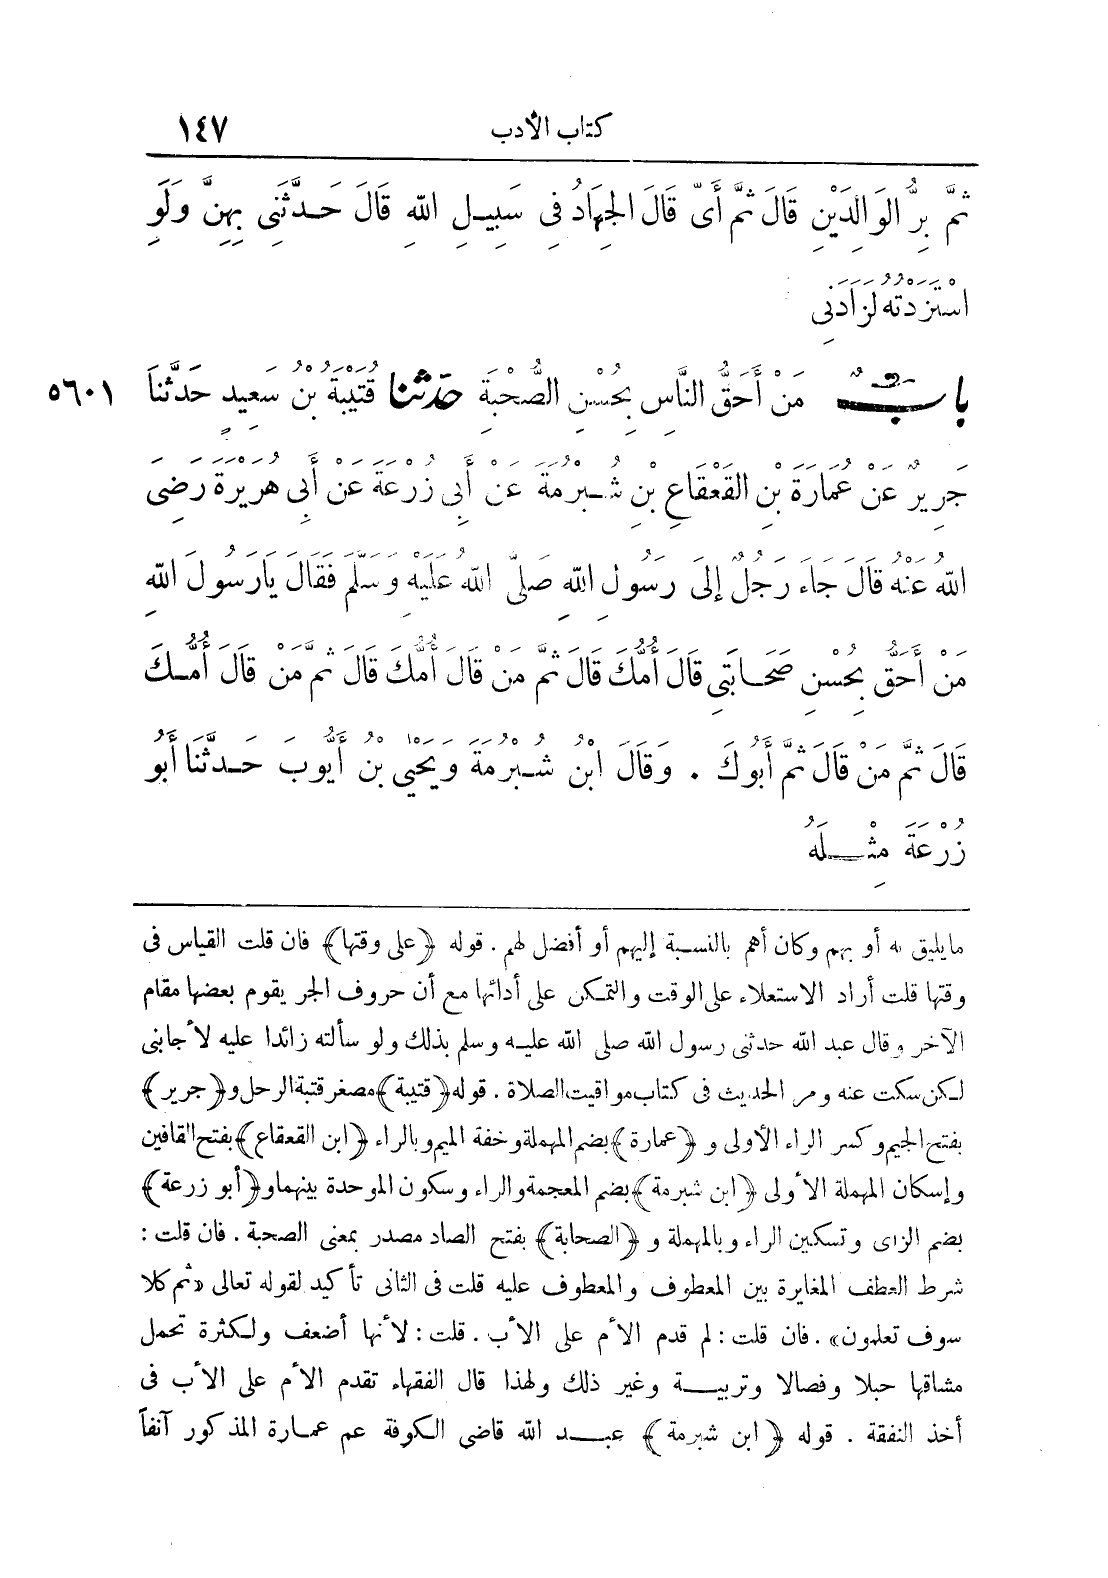 كتاب الأدب ١٤٧
ثُمَّ بِرُّ الوَالِدَيْنِ قَالَ ثُمَّ أَىّ قَالَ الجِهَادُ فِى سَبِيلِ اللهِ قَالَ حَدَّثَنِى بِهِنَّ وَلَوِ
اسْتَزَدْتُهُ لَزَادَنِى
بابٌ مَنْ أَحَقُّ النَّاسِ بِحُسْنِ الصُّحْبَةِ حدثنا قُتَيْبَةُ بْنُ سَعِيدٍ حَدَّثَنَا ٥٦٠١
جَرِيرٌ عَنْ عُمَارَةَ بْنِ القَعْقَاعِ بْنِ شُبْرُمَةَ عَنْ أَبِى زُرْعَةَ عَنْ أَبِى هُرَيْرَةَ رَضِىَ
اللهُ عَنْهُ قَالَ جَاءَ رَجُلٌ إِلَى رَسُولِ اللهِ صَلَّى اللهُ عَلَيْهِ وَسَلَّمَ فَقَالَ يَارَسُولَ اللهِ
مَنْ أَحَقُّ بِحُسْنِ صَحَابَتِى قَالَ أُمُّكَ قَالَ ثُمَّ مَنْ قَالَ أُمُّكَ قَالَ ثُمَّ مَنْ قَالَ أُمُّكَ
قَالَ ثُمَّ مَنْ قَالَ ثُمَّ أَبُوكَ . وَقَالَ ابْنُ شُبْرُمَةَ وَيَحْيَى بْنُ أَيُّوبَ حَدَّثَنَا أَبُو
زُرْعَةَ مِثْلَهُ
مايليق به أو بهم وكان أهم بالنسبة إليهم أو أفضل لهم . قوله ﴿على وقتها﴾ فان قلت القياس فى
وقتها قلت أراد الاستعلاء على الوقت والتمكن على أدائها مع أن حروف الجر يقوم بعضها مقام
الآخر وقال عبد الله حدثنى رسول الله صلى الله عليه وسلم بذلك ولو سألته زائدا عليه لأجابنى
لكن سكت عنه ومر الحديث فى كتاب مواقيت الصلاة . قوله ﴿قتيبة﴾ مصغر قتبة الرحل و ﴿جرير﴾
بفتح الجيم وكسر الراء الأولى و ﴿عمارة﴾ بضم المهملة وخفة الميم وبالراء ﴿ابن القعقاع﴾ بفتح القافين
وإسكان المهملة الأولى ﴿ابن شبرمة﴾ بضم المعجمة والراء وسكون الموحدة بينهما و ﴿أبو زرعة﴾
بضم الزاى وتسكين الراء وبالمهملة و ﴿الصحابة﴾ بفتح الصاد مصدر بمعنى الصحبة . فان قلت :
شرط العطف المغايرة بين المعطوف والمعطوف عليه قلت فى الثانى تأكيد لقوله تعالى «ثم كلا
سوف تعلمون» . فان قلت : لم قدم الأم على الأب . قلت : لأنها أضعف ولكثرة تحمل
مشاقها حبلا وفصالا وتربية وغير ذلك ولهذا قال الفقهاء تقدم الأم على الأب فى
أخذ النفقة . قوله ﴿ابن شبرمة﴾ عبد الله قاضى الكوفة عم عمارة المذكور آنفاً